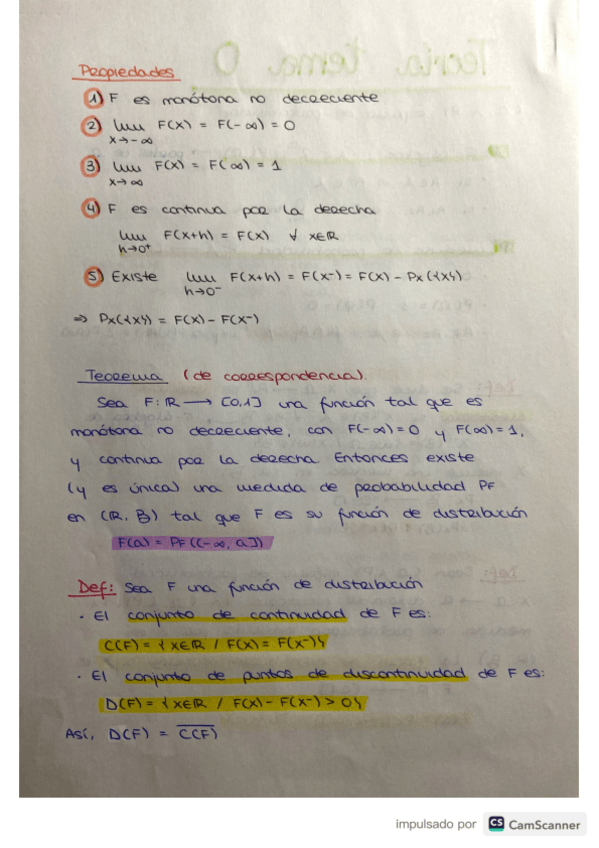 Propiedades
1) F es monótona no decreciente
2) lim F(x) = F(-∞) = 0
x→-∞
3) lim F(x) = F(∞) = 1
x→∞
4) F es continua por la derecha
lim F(x+h) = F(x) ∀ x∈ℝ
h→0⁺
5) Existe lim F(x+h) = F(x⁻) = F(x) - Px({x})
h→0⁻
⇒ Px({x}) = F(x) - F(x⁻)
Teorema (de correspondencia).
Sea F: ℝ → [0,1] una función tal que es
monótona no decreciente, con F(-∞)=0 y F(∞)=1,
y continua por la derecha. Entonces existe
(y es única) una medida de probabilidad PF
en (ℝ, B) tal que F es su función de distribución
F(a) = PF((-∞, a])
Def: Sea F una función de distribución
· El conjunto de continuidad de F es:
C(F) = {x∈ℝ / F(x) = F(x⁻)}
· El conjunto de puntos de discontinuidad de F es:
D(F) = {x∈ℝ / F(x) - F(x⁻) > 0}
Así, D(F) = C̅(̅F̅)̅
impulsado por CS CamScanner